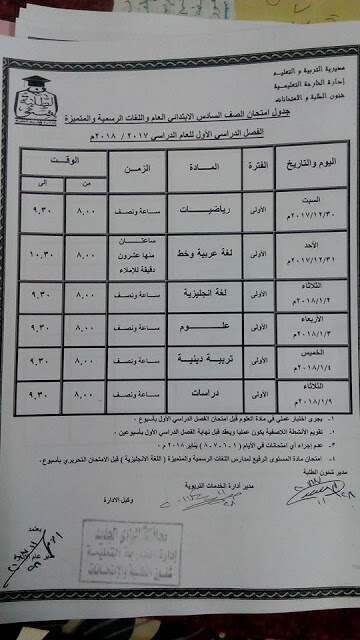 مديرية التربية و التعليم
إدارة الخارجة التعليمية
شئون الطلبة و الامتحانات
جدول امتحان الصف السادس الابتدائي العام واللغات الرسمية والمتميزة
الفصل الدراسي الأول للعام الدراسي ٢٠١٧ / ٢٠١٨م
اليوم والتاريخ الفترة المــادة الزمن الوقت
من إلى
السبت ٢٠١٧/١٢/٣٠م الأولى رياضيات ساعة ونصف ٨,٠٠ ٩,٣٠
الأحد ٢٠١٧/١٢/٣١م الأولى لغة عربية وخط ساعتان منها عشرون دقيقة للإملاء ٨,٠٠ ١٠,٣٠
الثلاثاء ٢٠١٨/١/٢م الأولى لغة انجليزية ساعة ونصف ٨,٠٠ ٩,٣٠
الأربعاء ٢٠١٨/١/٣م الأولى علـــوم ساعة ونصف ٨,٠٠ ٩,٣٠
الخميس ٢٠١٨/١/٤م الأولى تربية دينية ساعة ونصف ٨,٠٠ ٩,٣٠
الثلاثاء ٢٠١٨/١/٩م الأولى دراسات ساعة ونصف ٨,٠٠ ٩,٣٠
١- يجرى اختبار عملي في مادة العلوم قبل امتحان الفصل الدراسي الأول بأسبوع .
٢- تقويم الأنشطة اللاصفية يكون عمليا ويعقد قبل نهاية الفصل الدراسي الأول بأسبوعين .
٣- عدم إجراء أي امتحانات في الأيام ( ١-٦-٧-٨ ) يناير ٢٠١٨ م .
٤- امتحان مادة المستوى الرفيع لمدارس اللغات الرسمية والمتميزة ( اللغة الانجليزية ) قبل الامتحان التحريري بأسبوع .
مدير شئون الطلبة
مدير إدارة الخدمات التربوية
وكيل الادارة
يعتمد
محافظة الوادي الجديد
إدارة الخارجة التعليمية
شئون الطلبة والإمتحانات